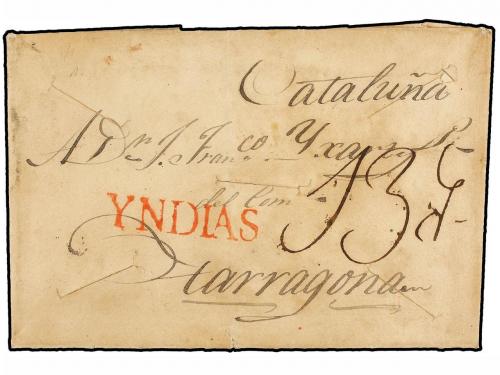 Cataluña
A Dn. J. Franco. Yxa
del Com
YNDIAS
Tarragona